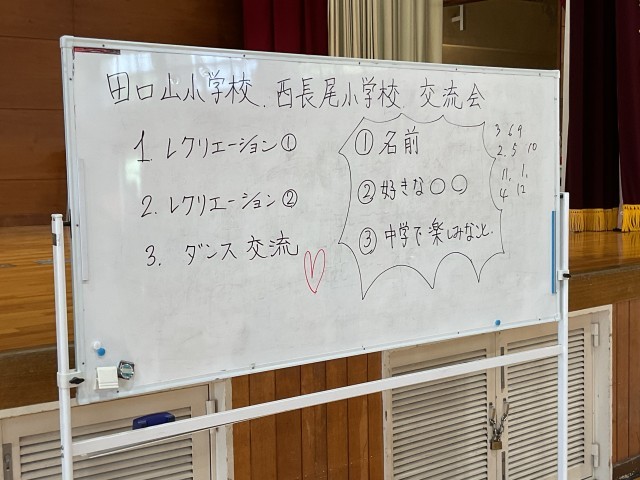 田口山小学校、西長尾小学校 交流会
1. レクリエーション①
2. レクリエーション②
3. ダンス交流
① 名前
② 好きな○○
③ 中学で楽しみなこと.
3 6 9
2. 5 10
11. 1.
4. 12